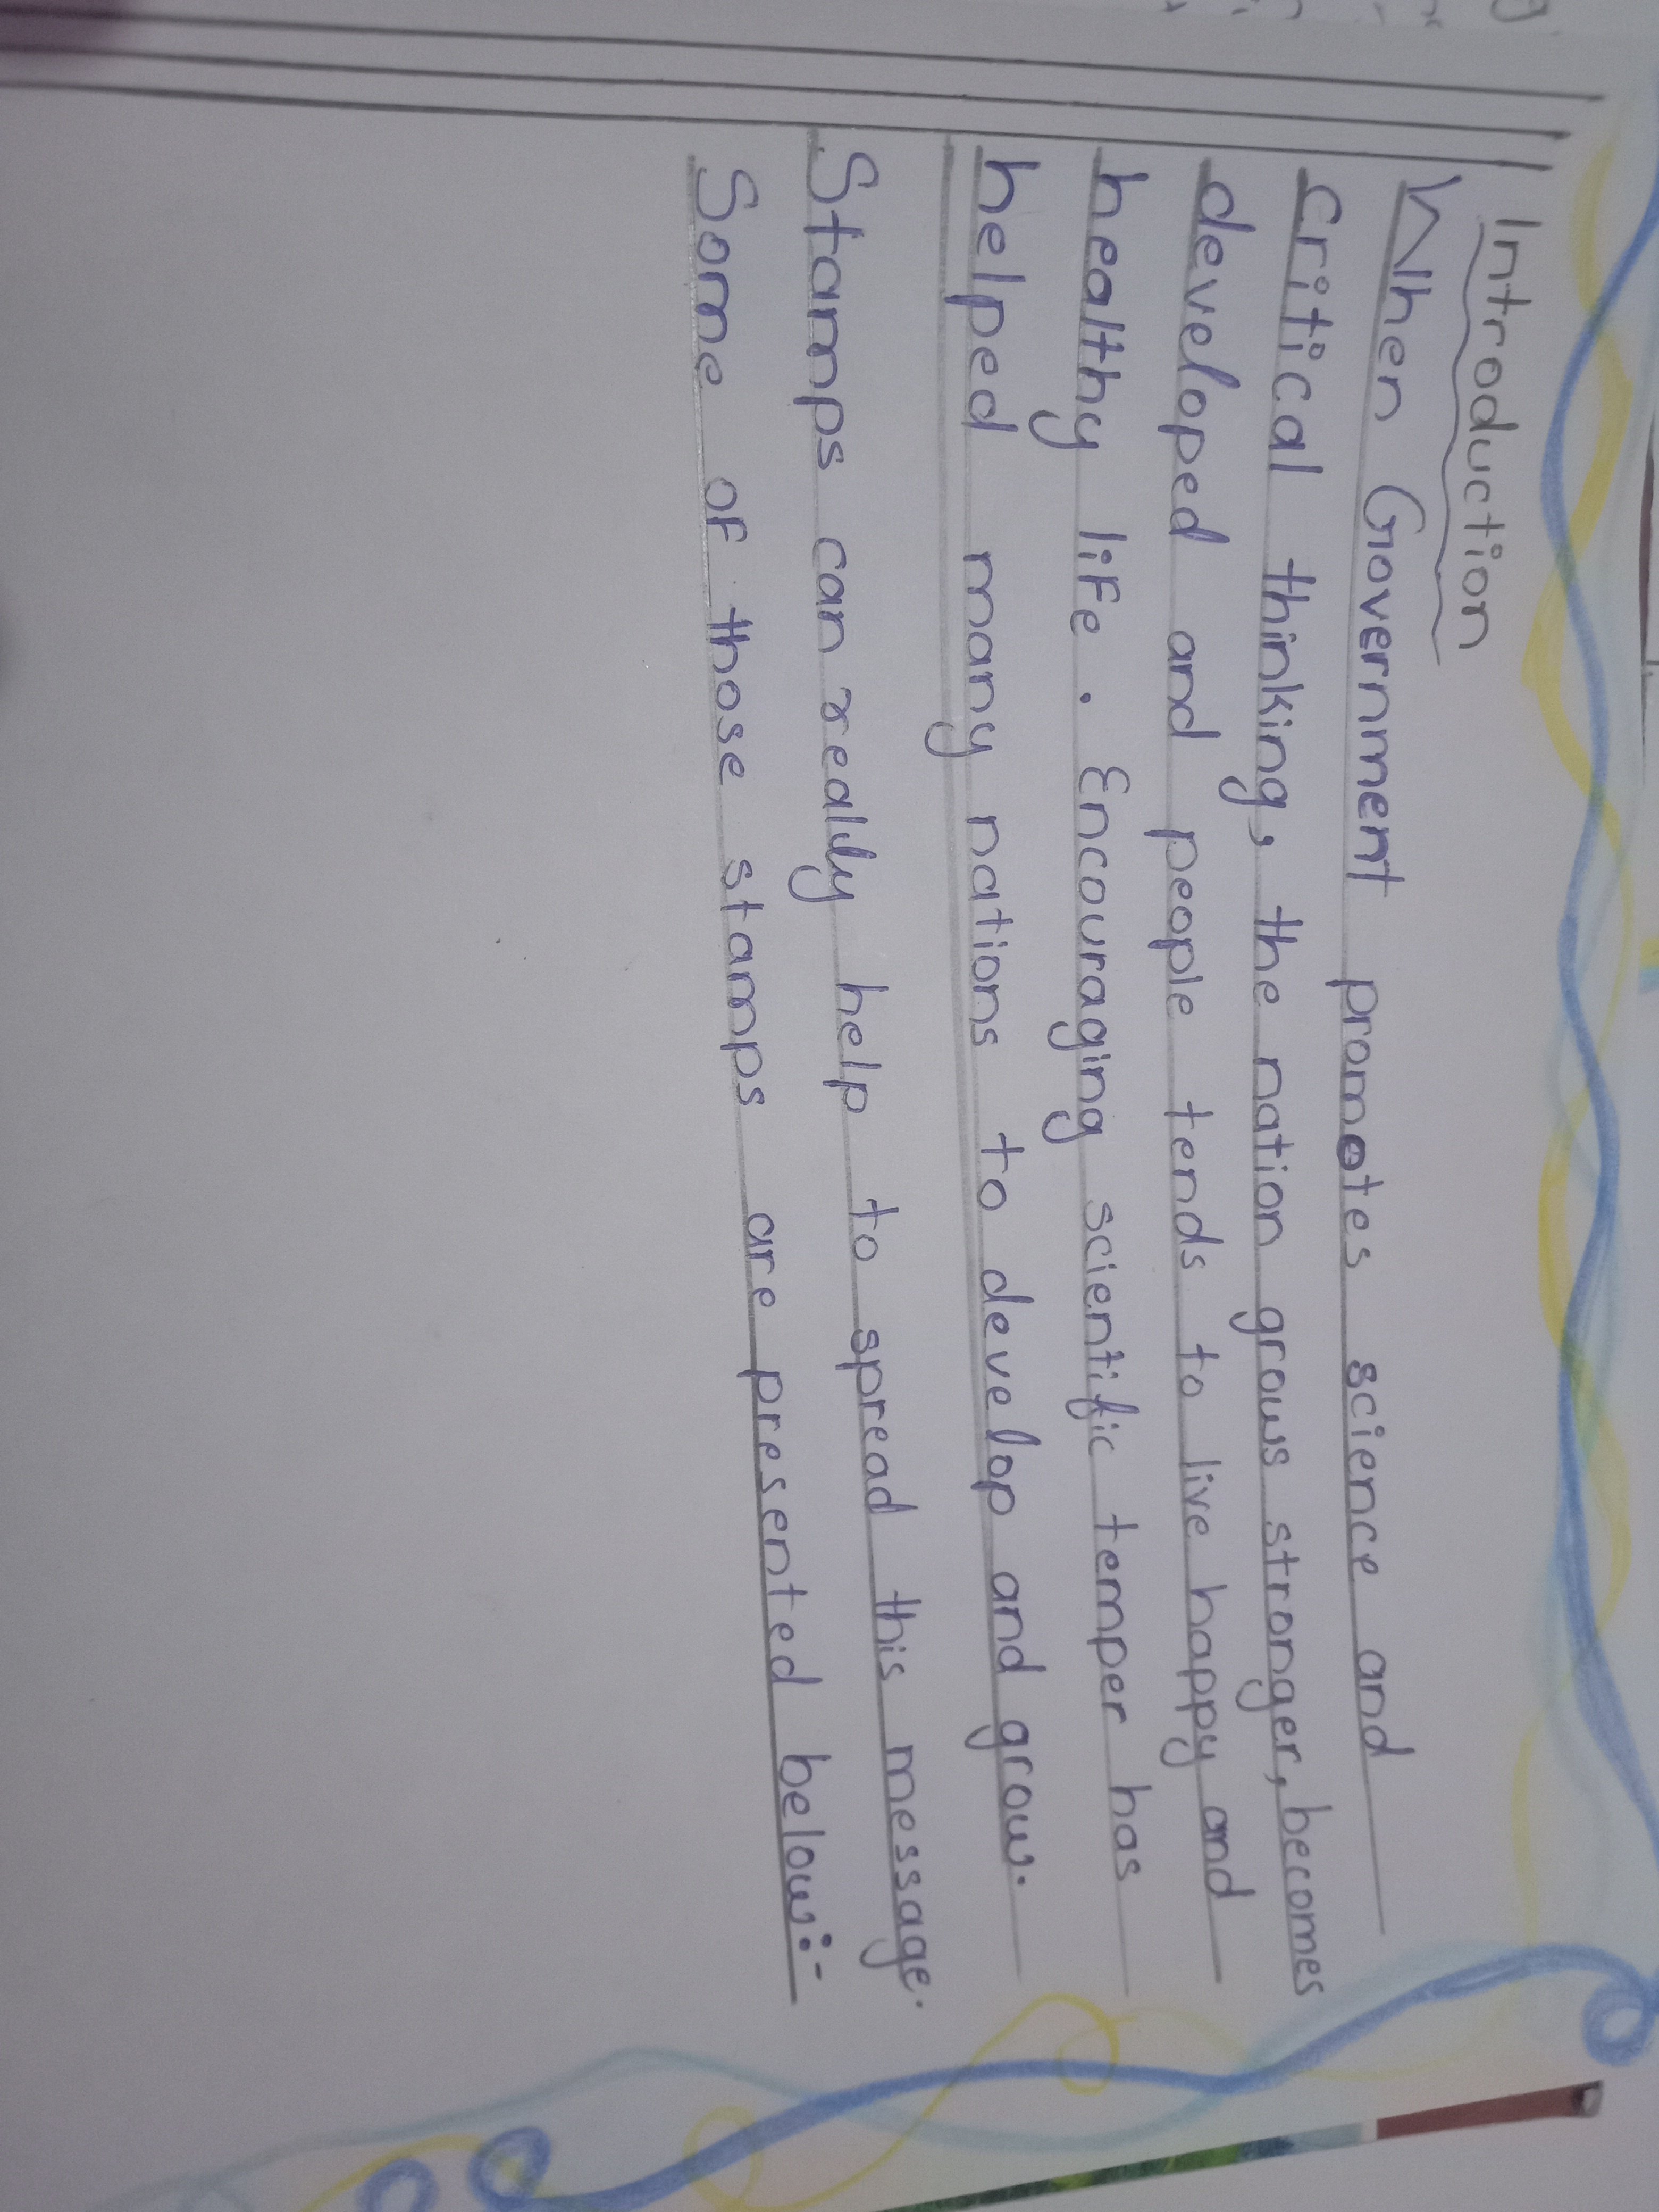 Introduction
When Government promotes science and
critical thinking, the nation grows stronger, becomes
developed and people tends to live happy and
healthy life. Encouraging scientific temper has
helped many nations to develop and grow.
Stamps can really help to spread this message.
Some of those stamps are presented below:-